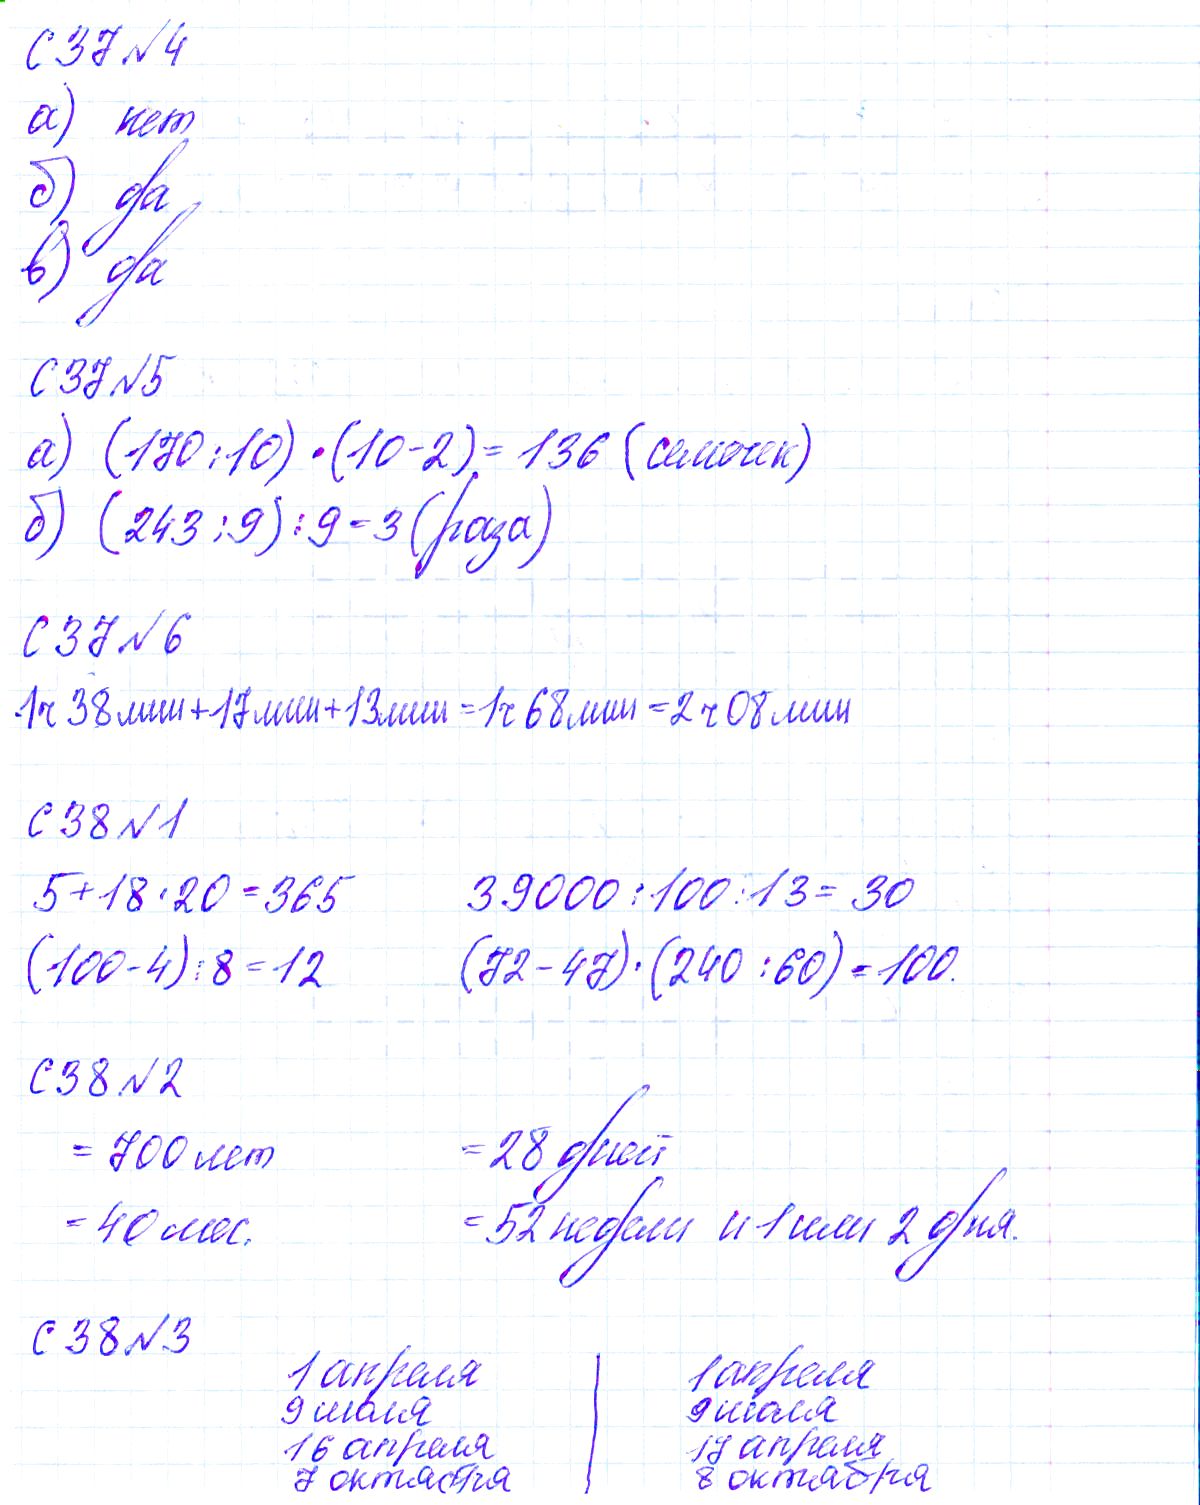 С 37 №4
а) нет
б) да
в) да
С 37 №5
а) (170:10)·(10-2)=136 (семочек)
б) (243:9):9=3 (раза)
С 37 №6
1ч 38мин+17мин+13мин=1ч 68мин=2ч 08мин
С 38 №1
5+18·20=365 39000:100:13=30
(100-4):8=12 (72-47)·(240:60)=100.
С 38 №2
=700 лет =28 дней
=40 мес. =52 недели и 1 или 2 дня.
С 38 №3
1 апреля 1 апреля
9 июля 9 июля
16 апреля 17 апреля
7 октября 8 октября